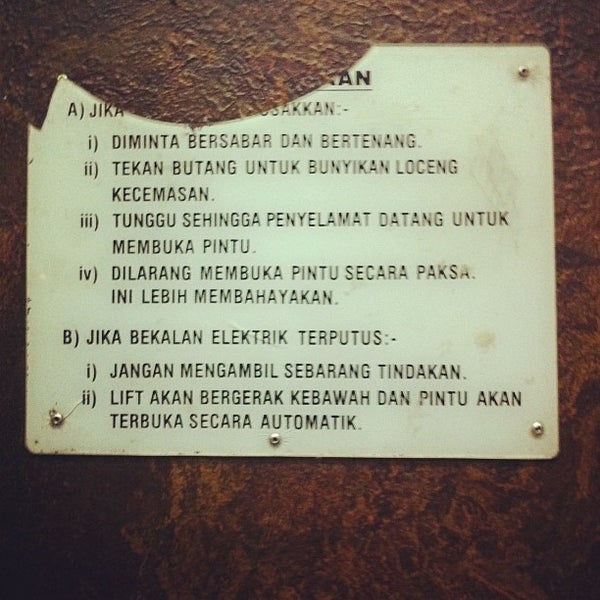 KAN
A) JIKA OSAKKAN:-
i) DIMINTA BERSABAR DAN BERTENANG.
ii) TEKAN BUTANG UNTUK BUNYIKAN LOCENG
KECEMASAN.
iii) TUNGGU SEHINGGA PENYELAMAT DATANG UNTUK
MEMBUKA PINTU.
iv) DILARANG MEMBUKA PINTU SECARA PAKSA.
INI LEBIH MEMBAHAYAKAN.
B) JIKA BEKALAN ELEKTRIK TERPUTUS:-
i) JANGAN MENGAMBIL SEBARANG TINDAKAN.
ii) LIFT AKAN BERGERAK KEBAWAH DAN PINTU AKAN
TERBUKA SECARA AUTOMATIK.